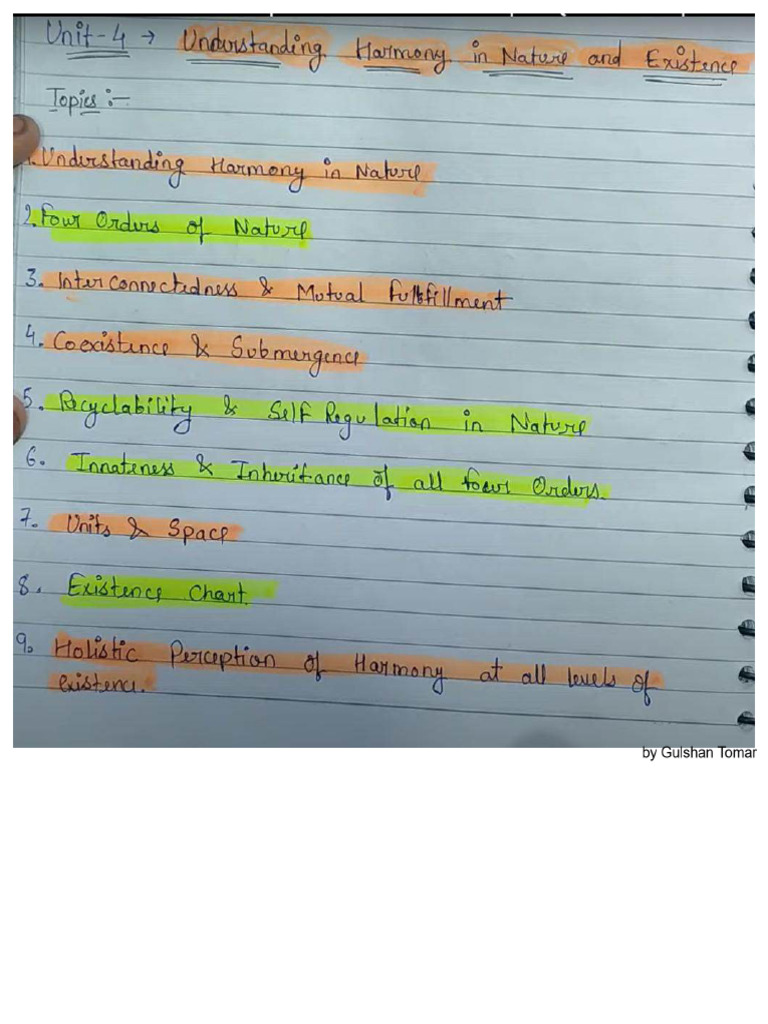 Unit-4 → Understanding Harmony in Nature and Existence
Topics :-
1. Understanding Harmony in Nature
2. Four Orders of Nature
3. Interconnectedness & Mutual Fulfillment
4. Coexistence & Submergence
5. Recyclability & Self Regulation in Nature
6. Innateness & Inheritance of all four Orders.
7. Units & Space
8. Existence Chart.
9. Holistic Perception of Harmony at all levels of
existence.
by Gulshan Tomar